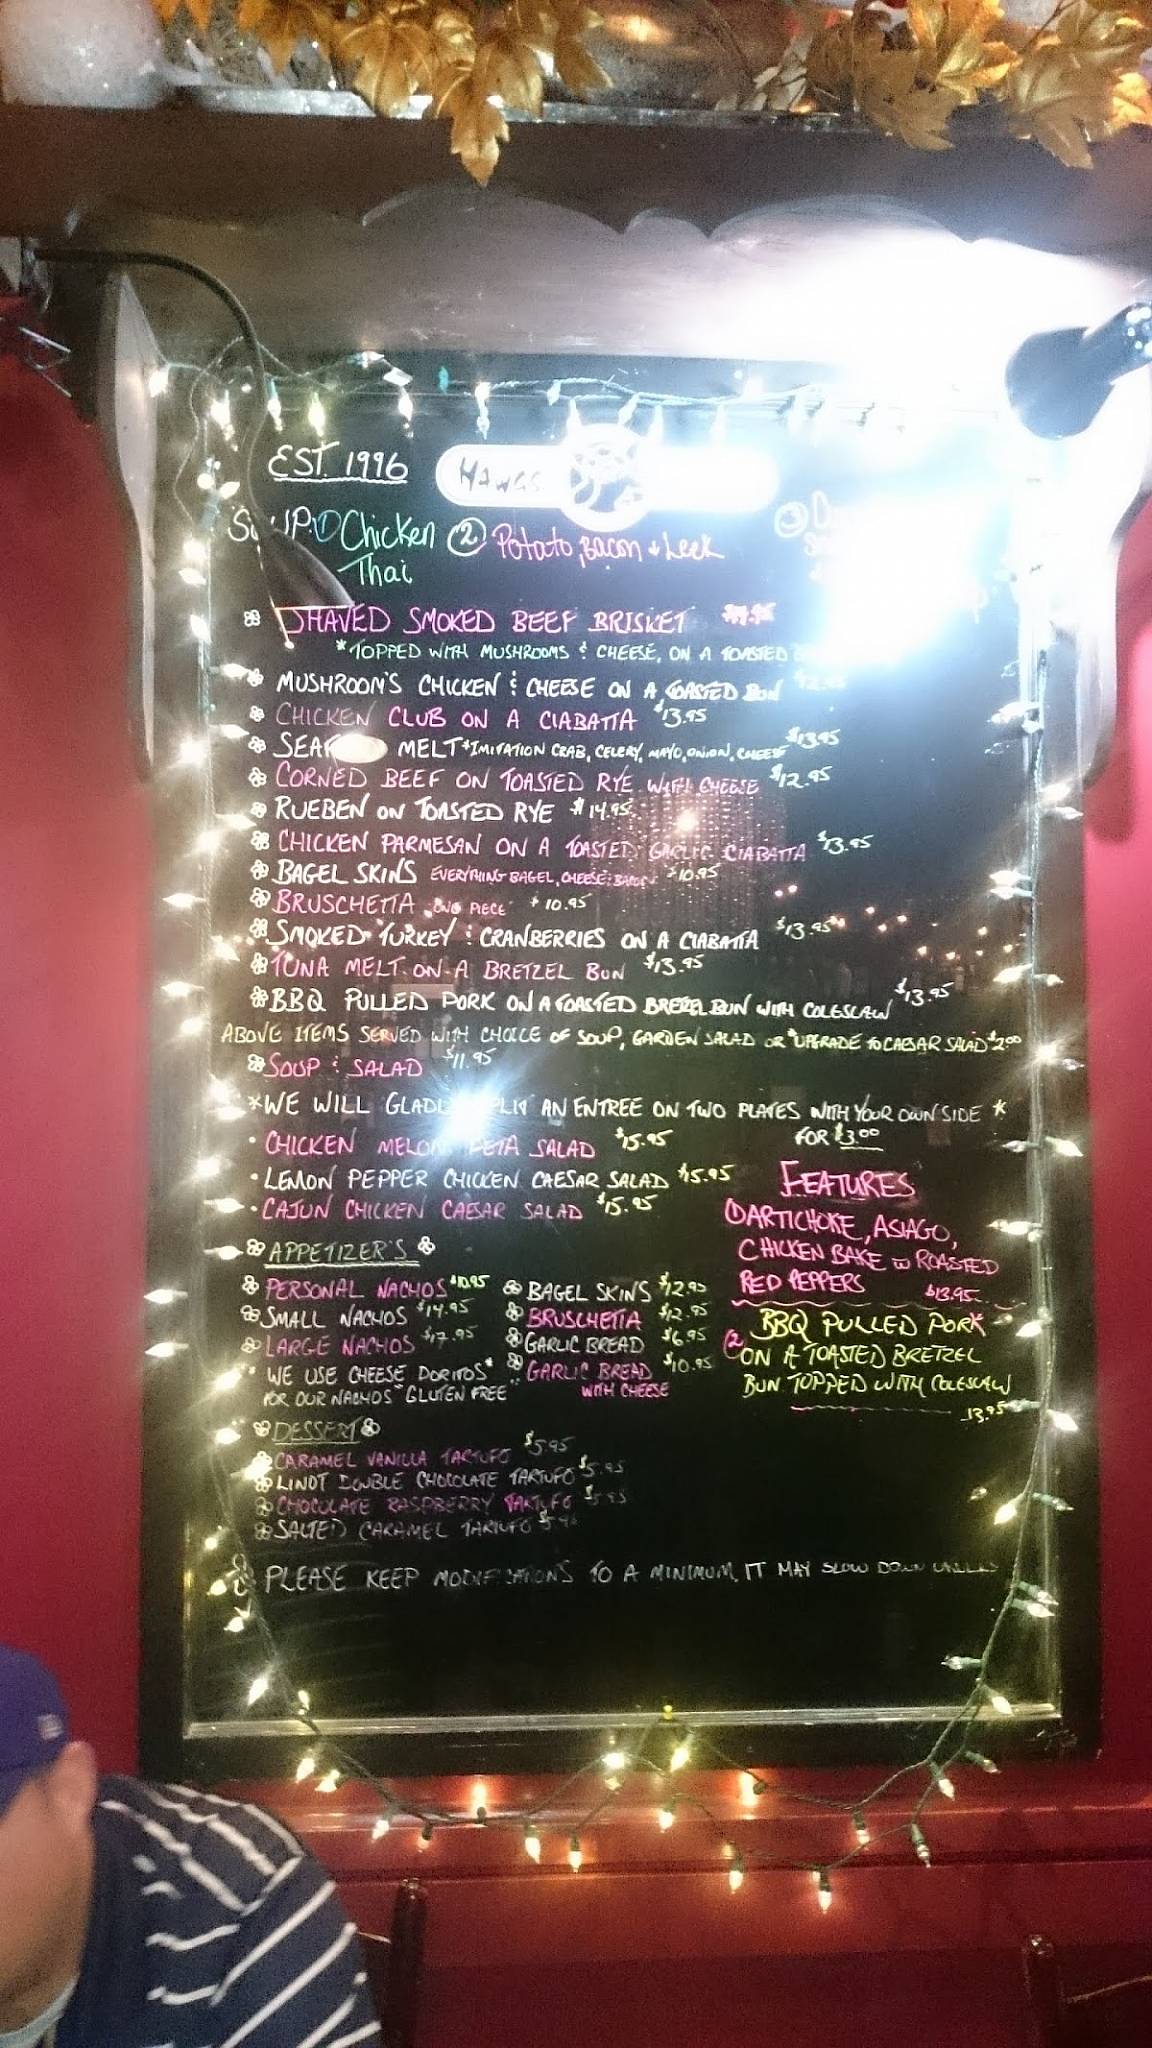 EST. 1996 HAWGS
SOUP: ① Chicken Thai ② Potato, Bacon & Leek ③
SHAVED SMOKED BEEF BRISKET
*TOPPED WITH MUSHROOMS & CHEESE, ON A TOASTED
MUSHROOM'S CHICKEN & CHEESE ON A TOASTED BUN
CHICKEN CLUB ON A CIABATTA $13.95
MELT *IMITATION CRAB, CELERY, MAYO, ONION, CHEESE $13.95
CORNED BEEF ON TOASTED RYE WITH CHEESE $12.95
RUEBEN ON TOASTED RYE $14.95
CHICKEN PARMESAN ON A TOASTED GARLIC CIABATTA $13.95
BAGEL SKINS EVERYTHING BAGEL, CHEESE & BACON 10.95
BRUSCHETTA PIECE 10.95
SMOKED TURKEY & CRANBERRIES ON A CIABATTA $13.95
TUNA MELT ON A BRETZEL BUN $13.95
BBQ PULLED PORK ON A TOASTED BREZEL BUN WITH COLESLAW $13.95
ABOVE ITEMS SERVED WITH CHOICE OF SOUP, GARDEN SALAD OR *UPGRADE TO CAESAR SALAD $2.00
SOUP & SALAD $11.95
*WE WILL GLADLY SPLIT AN ENTREE ON TWO PLATES WITH YOUR OWN SIDE *
FOR $3.00
• CHICKEN MELON FETA SALAD $15.95
• LEMON PEPPER CHICKEN CAESAR SALAD $15.95
• CAJUN CHICKEN CAESAR SALAD $15.95
APPETIZER'S
PERSONAL NACHOS $10.95
SMALL NACHOS $14.95
LARGE NACHOS $17.95
* WE USE CHEESE DORITOS *
FOR OUR NACHOS GLUTEN FREE
BAGEL SKINS $12.95
BRUSCHETTA $12.95
GARLIC BREAD $6.95
GARLIC BREAD $10.95
WITH CHEESE
FEATURES
① ARTICHOKE, ASIAGO,
CHICKEN BAKE w ROASTED
RED PEPPERS $13.95
② BBQ PULLED PORK
ON A TOASTED BRETZEL
BUN TOPPED WITH COLESLAW
13.95
DESSERT
CARAMEL VANILLA TARTUFO $5.95
LINDT DOUBLE CHOCOLATE TARTUFO $5.95
CHOCOLATE RASPBERRY TARTUFO $5.95
SALTED CARAMEL TARTUFO
PLEASE KEEP MODIFICATIONS TO A MINIMUM, IT MAY SLOW DOWN